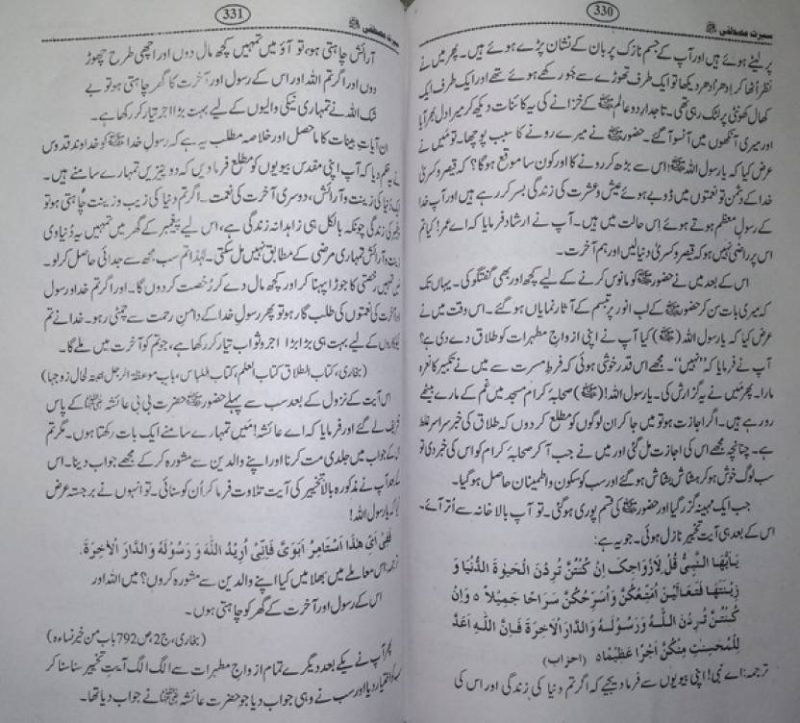 330
سیرت مصطفیٰ ﷺ
پر لیٹے ہوئے ہیں اور آپ کے جسم نازک پر بان کے نشان پڑے ہوئے ہیں۔ پھر میں نے
نظر اٹھا کر اِدھر اُدھر دیکھا تو ایک طرف تھوڑے سے جَو رکھے ہوئے تھے اور ایک طرف ایک
کھال کھونٹی پر لٹک رہی تھی۔ تاجدار دو عالم ﷺ کے خزانے کی یہ کائنات دیکھ کر میرا دل بھر آیا
اور میری آنکھوں میں آنسو آ گئے۔ حضور ﷺ نے میرے رونے کا سبب پوچھا۔ تو میں نے
عرض کیا کہ یا رسول اللہ (ﷺ) اس سے بڑھ کر رونے کا اور کون سا موقع ہوگا؟ کہ قیصر و کسریٰ
خدا کے دشمن تو نعمتوں میں ڈوبے ہوئے عیش و عشرت کی زندگی بسر کر رہے ہیں اور آپ خدا
کے رسولِ معظم ہوتے ہوئے اِس حالت میں ہیں۔ آپ نے ارشاد فرمایا کہ اے عمر! کیا تم
اس پر راضی نہیں ہو کہ قیصر و کسریٰ دنیا لیں اور ہم آخرت۔
اس کے بعد میں نے حضور ﷺ کو مانوس کرنے کے لیے کچھ اور بھی گفتگو کی۔ یہاں تک
کہ میری بات سن کر حضور ﷺ کے لب انور پر تبسم کے آثار نمایاں ہو گئے۔ اس وقت میں نے
عرض کیا کہ یا رسول اللہ (ﷺ) کیا آپ نے اپنی ازواجِ مطہرات کو طلاق دے دی ہے؟
آپ نے فرمایا کہ "نہیں"۔ مجھے اس قدر خوشی ہوئی کہ فرطِ مسرت سے میں نے تکبیر کا نعرہ
مارا۔ پھر میں نے یہ گزارش کی۔ یا رسول اللہ! (ﷺ) صحابہ کرام مسجد میں غم کے مارے بیٹھے
رو رہے ہیں۔ اگر اجازت ہو تو میں جا کر ان لوگوں کو مطلع کر دوں کہ طلاق کی خبر سراسر غلط
ہے۔ چنانچہ مجھے اس کی اجازت مل گئی اور میں نے جب آ کر صحابۂ کرام کو اس کی خبر دی تو
سب لوگ خوش ہو کر ہشاش بشاش ہو گئے اور سب کو سکون و اطمینان حاصل ہو گیا۔
جب ایک مہینہ گزر گیا اور حضور ﷺ کی قسم پوری ہو گئی۔ تو آپ بالا خانہ سے اُتر آئے۔
اس کے بعد ہی آیت تخییر نازل ہوئی۔ جو یہ ہے:
يٰٓاَيُّهَا النَّبِيُّ قُلْ لِّاَزْوَاجِكَ اِنْ كُنْتُنَّ تُرِدْنَ الْحَيٰوةَ الدُّنْيَا وَ
زِيْنَتَهَا فَتَعَالَيْنَ اُمَتِّعْكُنَّ وَاُسَرِّحْكُنَّ سَرَاحًا جَمِيْلًا ٥ وَاِنْ
كُنْتُنَّ تُرِدْنَ اللّٰهَ وَرَسُوْلَهٗ وَالدَّارَ الْاٰخِرَةَ فَاِنَّ اللّٰهَ اَعَدَّ
لِلْمُحْسِنٰتِ مِنْكُنَّ اَجْرًا عَظِيْمًا٥ (احزاب)
ترجمہ: اے نبی! اپنی بیویوں سے فرما دیجیے کہ اگر تم دنیا کی زندگی اور اس کی
331
سیرت مصطفیٰ ﷺ
آرائش چاہتی ہو، تو آؤ میں تمہیں کچھ مال دوں اور اچھی طرح چھوڑ
دوں اور اگر تم اللہ اور اس کے رسول اور آخرت کا گھر چاہتی ہو تو بے
شک اللہ نے تمہاری نیکی والیوں کے لیے بہت بڑا اجر تیار کر رکھا ہے۔
ان آیاتِ بینات کا ماحصل اور خلاصہ مطلب یہ ہے کہ رسولِ خدا ﷺ کو خداوند قدوس
نے یہ حکم دیا کہ آپ اپنی مقدس بیویوں کو مطلع فرما دیں کہ دو چیزیں تمہارے سامنے ہیں۔
ایک دنیا کی زینت و آرائش، دوسری آخرت کی نعمت۔ اگر تم دنیا کی زیب و زینت چاہتی ہو تو
پیغمبر کی زندگی چونکہ بالکل ہی زاہدانہ زندگی ہے، اس لیے پیغمبر کے گھر میں تمہیں یہ دُنیاوی
زینت و آرائش تمہاری مرضی کے مطابق نہیں مل سکتی۔ لہٰذا تم سب مجھ سے جدائی حاصل کر لو۔
میں تمہیں رخصتی کا جوڑا پہنا کر اور کچھ مال دے کر رُخصت کر دوں گا۔ اور اگر تم خدا و رسول
اور آخرت کی نعمتوں کی طلب گار ہو تو پھر رسولِ خدا کے دامنِ رحمت سے چمٹی رہو۔ خدا نے تم
نیکوکاروں کے لیے بہت ہی بڑا بڑا اجر و ثواب تیار کر رکھا ہے، جو تم کو آخرت میں ملے گا۔
(بخاری، کتاب الطلاق کتاب العلم، کتاب اللباس، باب موعظة الرجل ابنته لحال زوجہا)
اس آیت کے نزول کے بعد سب سے پہلے حضور ﷺ حضرت بی بی عائشہ کے پاس
تشریف لے گئے اور فرمایا کہ اے عائشہ! میں تمہارے سامنے ایک بات رکھتا ہوں۔ مگر تم
اس کے جواب میں جلدی مت کرنا اور اپنے والدین سے مشورہ کر کے مجھے جواب دینا۔ اس
کے بعد آپ نے مذکورہ بالا تخییر کی آیت تلاوت فرما کر اُن کو سنائی۔ تو انہوں نے برجستہ عرض
کیا کہ یا رسول اللہ!
فَفِيْ اَيِّ هٰذَا اَسْتَامِرُ اَبَوَيَّ فَاِنِّيْ اُرِيْدُ اللّٰهَ وَ رَسُوْلَهٗ وَالدَّارَ الْاٰخِرَةَ۔
ترجمہ: اس معاملے میں بھلا میں کیا اپنے والدین سے مشورہ کروں؟ میں اللہ اور
اس کے رسول اور آخرت کے گھر کو چاہتی ہوں۔
(بخاری، ج 2، ص 792 باب من خیر نساءہ)
پھر آپ نے یکے بعد دیگرے تمام ازواجِ مطہرات سے الگ الگ آیتِ تخییر سنا سنا کر
سب کو اختیار دیا اور سب نے وہی جواب دیا جو حضرت عائشہ نے جواب دیا تھا۔